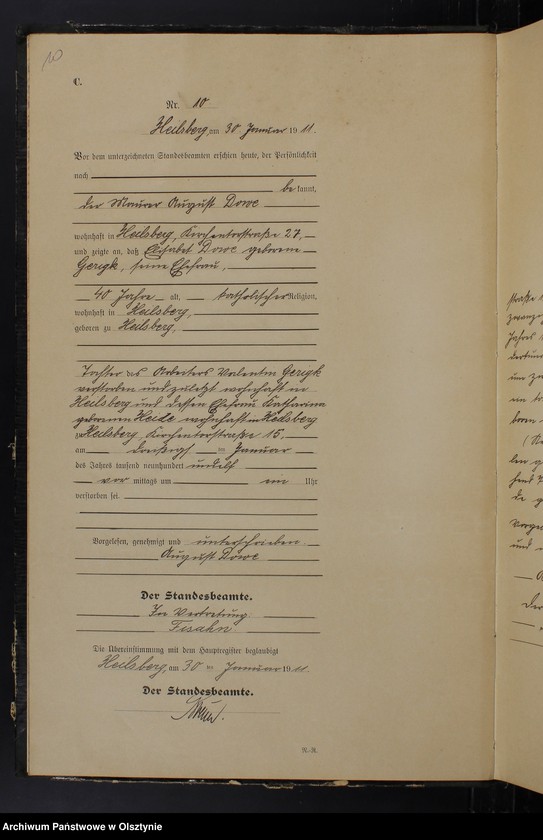 10
C.
Nr. 10
Heilsberg, am 30 Januar 1911.
Vor dem unterzeichneten Standesbeamten erschien heute, der Persönlichkeit
nach
be kannt,
der Maurer August Dowe
wohnhaft in Heilsberg, Kirchentorstraße 27,
und zeigte an, daß Elisabet Dowe geborene
Gerigk, seine Ehefrau,
40 Jahre alt, katholischer Religion,
wohnhaft in Heilsberg,
geboren zu Heilsberg,
Tochter des Arbeiters Valentin Gerigk
verstorben und zuletzt wohnhaft in
Heilsberg und dessen Ehefrau Katharina
geborenen Heide wohnhaft in Heilsberg
zu Heilsberg Kirchentorstraße 15,
am Januar
des Jahres tausend neunhundert und elf
vor mittags um ein Uhr
verstorben sei.
Vorgelesen, genehmigt und unterschrieben.
August Dowe
Der Standesbeamte.
In Vertretung
Fisahn
Die Übereinstimmung mit dem Hauptregister beglaubigt
Heilsberg, am 30 ten Januar 1911
Der Standesbeamte.
N.-R.
Archiwum Państwowe w Olsztynie